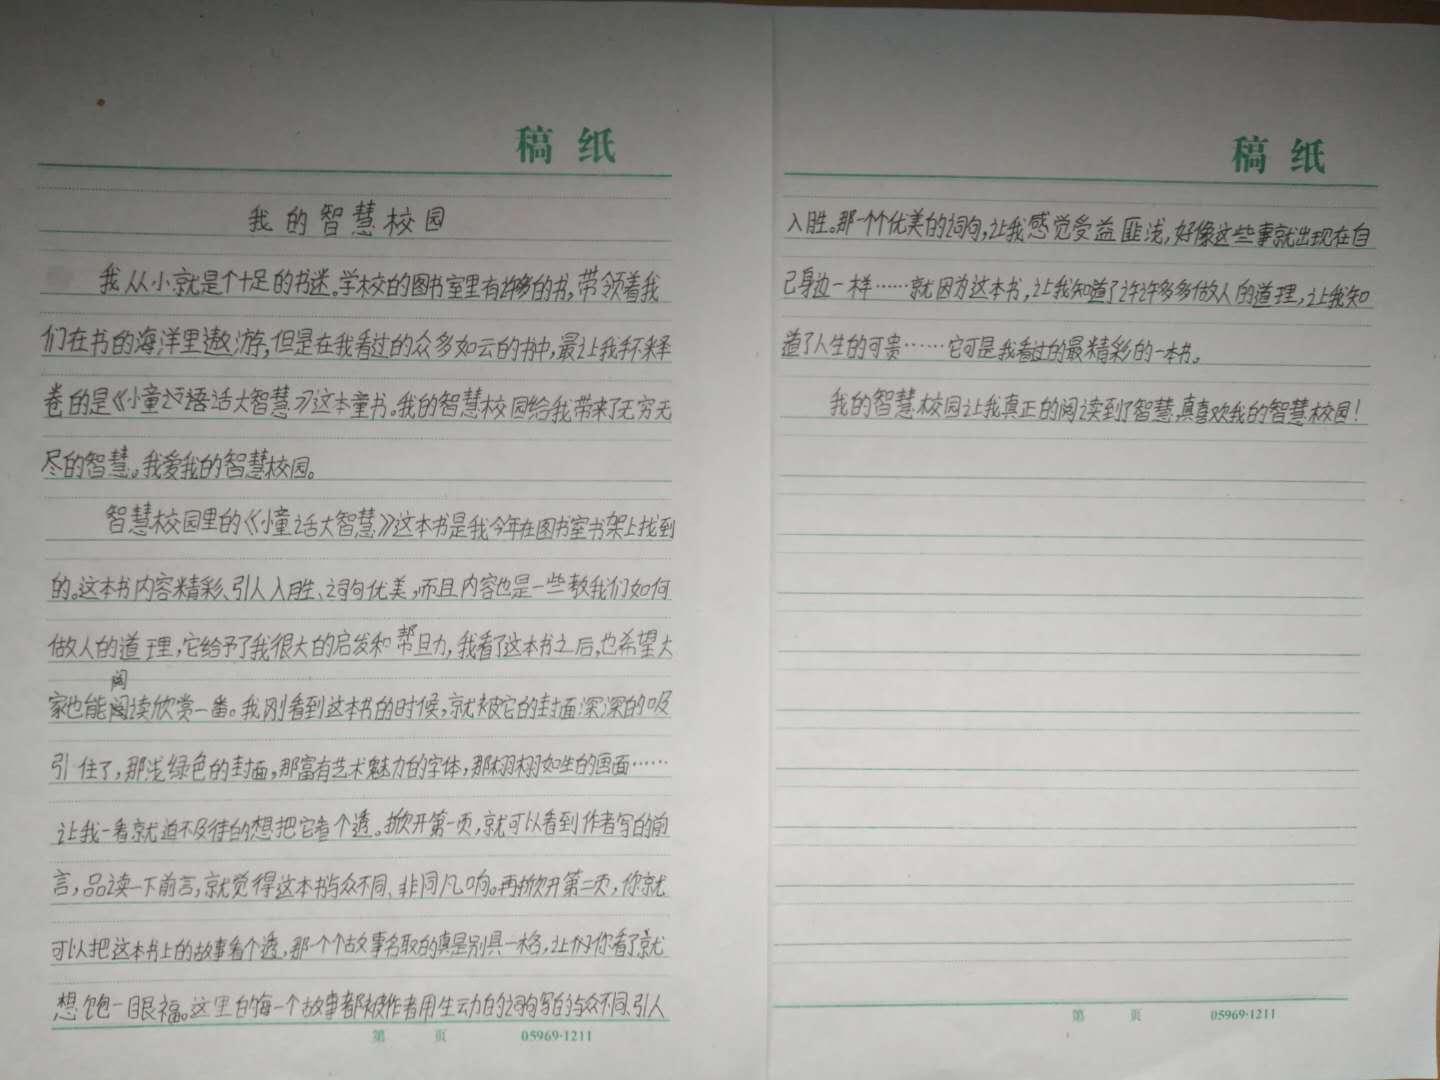 稿 纸
我的智慧校园
我从小就是个十足的书迷。学校的图书室里有许多的书,带领着我
们在书的海洋里遨游,但是在我看过的众多如云的书中,最让我手不释
卷的是《小童话大智慧》这本童书。我的智慧校园给我带来了无穷无
尽的智慧。我爱我的智慧校园。
智慧校园里的《小童话大智慧》这本书是我今年在图书室书架上找到
的。这本书内容精彩、引人入胜、词句优美,而且内容也是一些教我们如何
做人的道理,它给予了我很大的启发和帮助,我看了这本书之后,也希望大
家也能阅读欣赏一番。我刚看到这本书的时候,就被它的封面深深的吸
引住了,那浅绿色的封面,那富有艺术魅力的字体,那栩栩如生的画面……
让我一看就迫不及待的想把它看个透。掀开第一页,就可以看到作者写的前
言,品读一下前言,就觉得这本书与众不同、非同凡响。再掀开第二页,你就
可以把这本书上的故事看个透,那一个个故事名取的真是别具一格,让你看了就
想饱一眼福。这里的每一个故事都被作者用生动的词句写的与众不同、引人
第 页 05969·1211
稿 纸
入胜。那一个个优美的词句,让我感觉受益匪浅,好像这些事就出现在自
己身边一样……就因为这本书,让我知道了许许多多做人的道理,让我知
道了人生的可贵……它可是我看过的最精彩的一本书。
我的智慧校园让我真正的阅读到了智慧,真喜欢我的智慧校园!
第 页 05969·1211